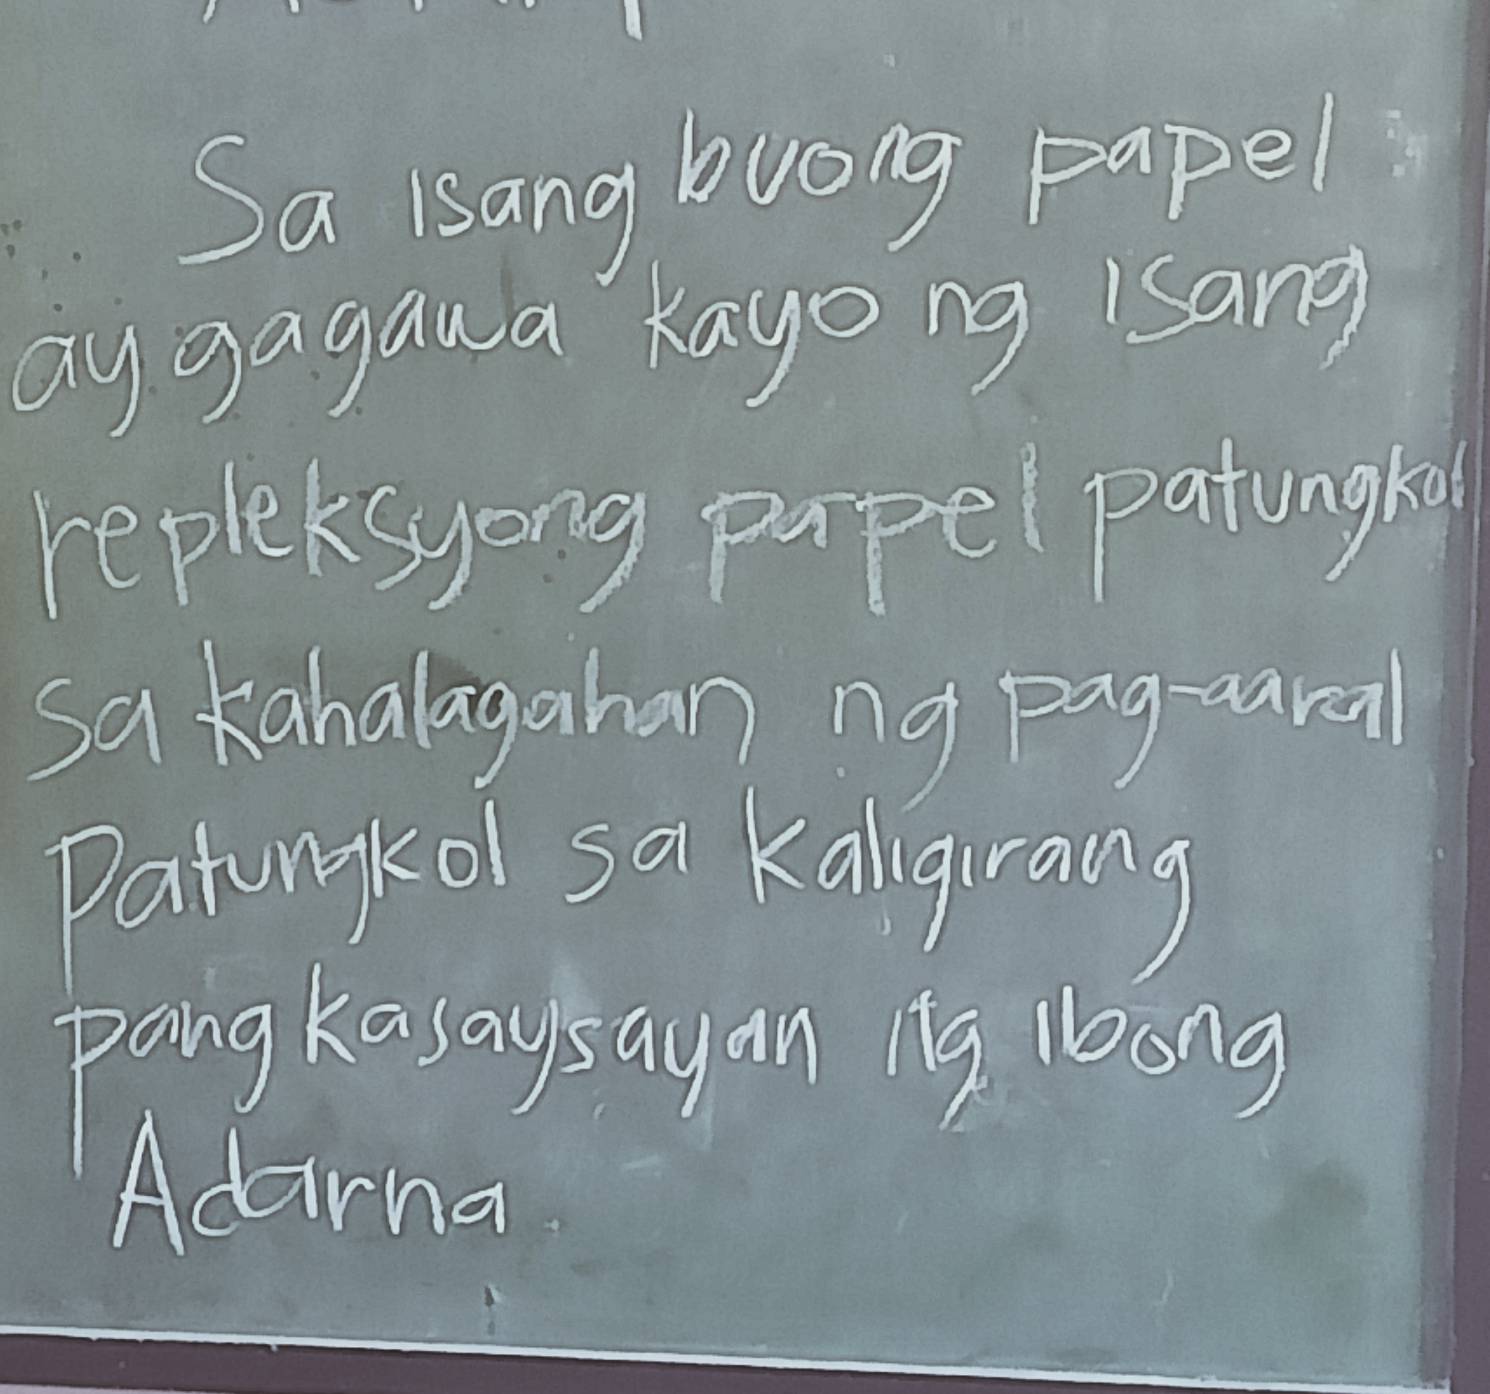 Sa isang buong papel
ay gagawa kayo ng isang
repleksyong papel patungkol
sa kahalagahan ng pag-aaral
Patungkol sa kaligirang
pang kasaysayan ng Ibong
Adarna.